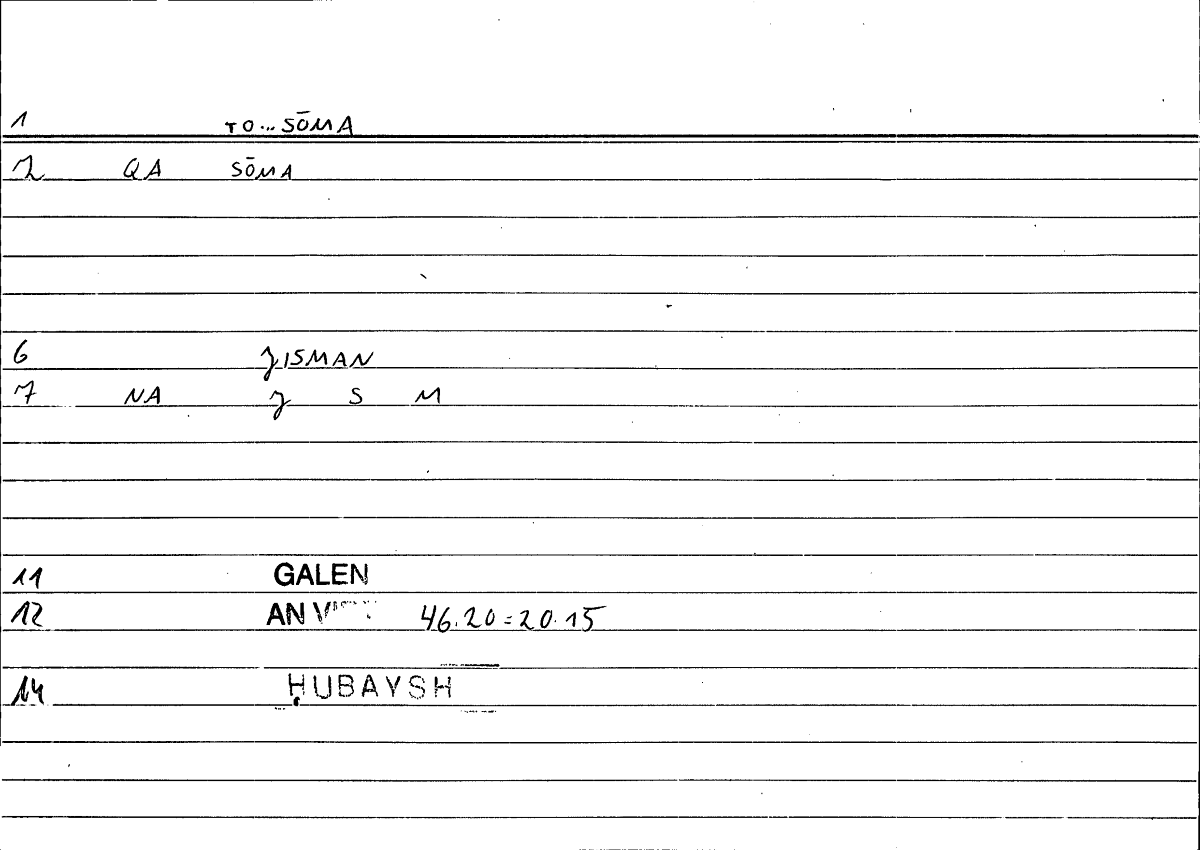 1 TO... SŌMA
2 QA SŌMA
6 JISMAN
7 NA J S M
11 GALEN
12 AN 46.20=20.15
14 ḤUBAYSH